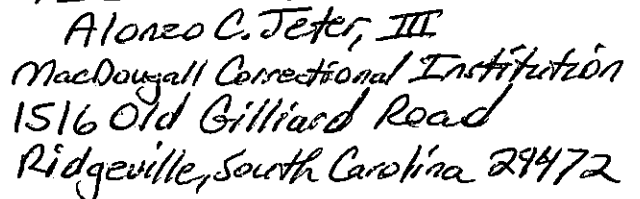 Alonzo C. Jeter, III
MacDougall Correctional Institution
1516 Old Gilliard Road
Ridgeville, South Carolina 29472